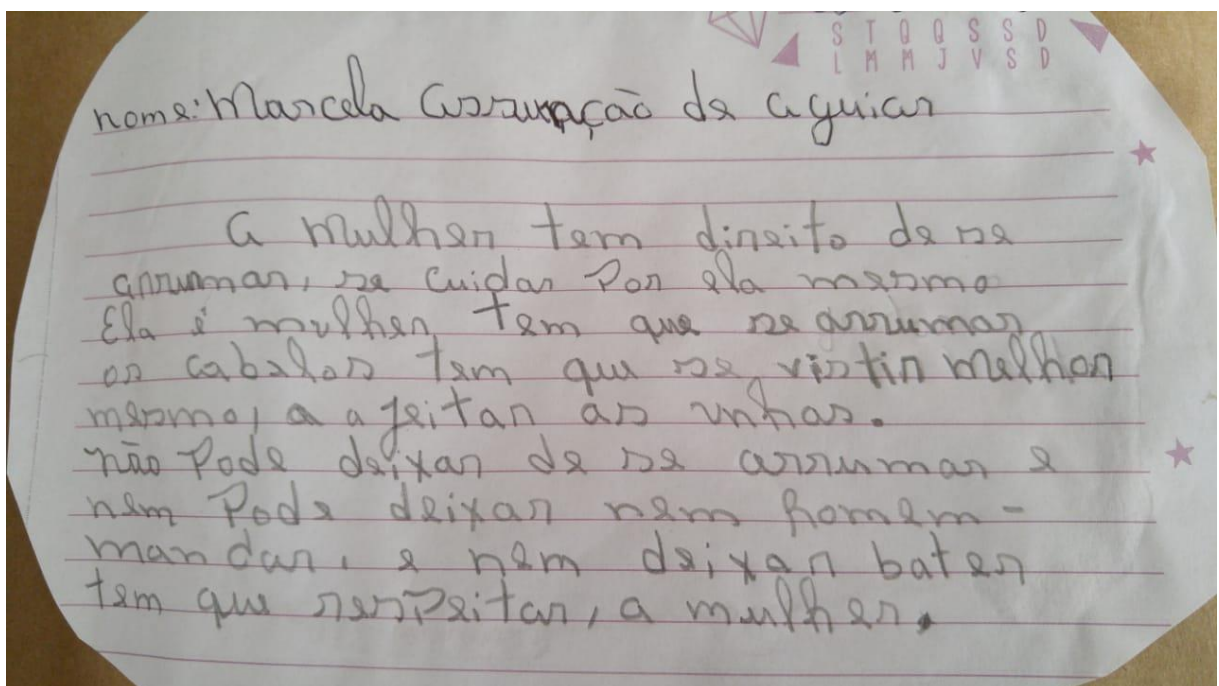 S T Q Q S S D
L M M J V S D
nome: Marcela Assunação de Aguiar
A mulher tem direito de se
arrumar, se cuidar Por ela mesmo
Ela é mulher, tem que se arrumar
os cabelos tem que se vistir melhor
mesmo, a ajeitar as unhas.
não Pode deixar de se arrumar e
nem Pode deixar nem homem-
mandar, e nem deixar bater
tem que resPeitar, a mulher.